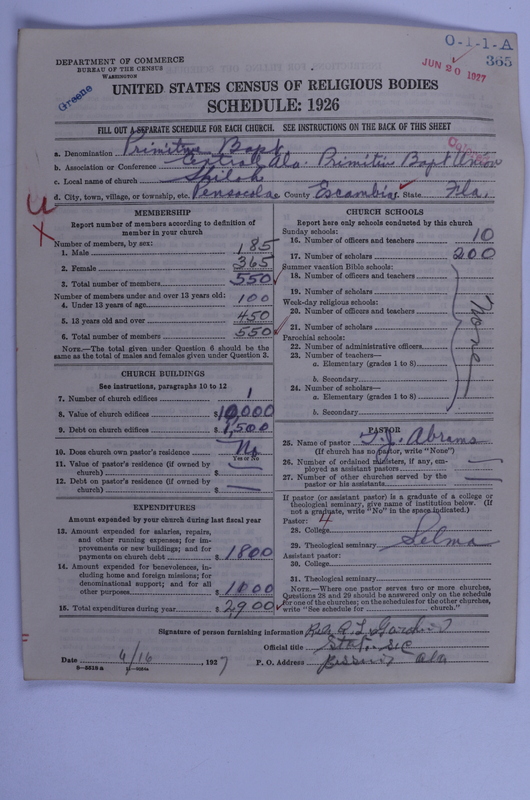 O-1-1-A
365
JUN 20 1927
Greene
DEPARTMENT OF COMMERCE
BUREAU OF THE CENSUS
WASHINGTON
UNITED STATES CENSUS OF RELIGIOUS BODIES
SCHEDULE: 1926
FILL OUT A SEPARATE SCHEDULE FOR EACH CHURCH. SEE INSTRUCTIONS ON THE BACK OF THIS SHEET
a. Denomination Primitive Bapt.
b. Association or Conference Central Ala Primitive Bapt Union
c. Local name of church Shiloh
d. City, town, village, or township, etc. Pensacola, County Escambia, State Fla.
MEMBERSHIP
Report number of members according to definition of member in your church
Number of members, by sex:
1. Male 185
2. Female 365
3. Total number of members 550
Number of members under and over 13 years old:
4. Under 13 years of age 100
5. 13 years old and over 450
6. Total number of members 550
NOTE.—The total given under Question 6 should be the same as the total of males and females given under Question 3.
CHURCH BUILDINGS
See instructions, paragraphs 10 to 12
7. Number of church edifices 1
8. Value of church edifices $10,000
9. Debt on church edifices $1,500
10. Does church own pastor's residence? No
Yes or No
11. Value of pastor's residence (if owned by church) $ —
12. Debt on pastor's residence (if owned by church) $ —
EXPENDITURES
Amount expended by your church during last fiscal year
13. Amount expended for salaries, repairs, and other running expenses; for improvements or new buildings; and for payments on church debt $1800
14. Amount expended for benevolences, including home and foreign missions; for denominational support; and for all other purposes $1000
15. Total expenditures during year $2,900
CHURCH SCHOOLS
Report here only schools conducted by this church
Sunday schools:
16. Number of officers and teachers 10
17. Number of scholars 200
Summer vacation Bible schools:
18. Number of officers and teachers
19. Number of scholars
Week-day religious schools:
20. Number of officers and teachers
21. Number of scholars
Parochial schools:
22. Number of administrative officers
23. Number of teachers—
a. Elementary (grades 1 to 8)
b. Secondary
24. Number of scholars—
a. Elementary (grades 1 to 8)
b. Secondary
None
PASTOR
25. Name of pastor T. J. Abrams
(If church has no pastor, write "None")
26. Number of ordained ministers, if any, employed as assistant pastors
27. Number of other churches served by the pastor or his assistants
If pastor (or assistant pastor) is a graduate of a college or theological seminary, give name of institution below. (If not a graduate, write "No" in the space indicated.)
Pastor: 4
28. College
29. Theological seminary Selma
Assistant pastor:
30. College
31. Theological seminary
NOTE.—Where one pastor serves two or more churches, Questions 28 and 29 should be answered only on the schedule for one of the churches; on the schedules for the other churches, write "See schedule for church."
Signature of person furnishing information
Official title State Sec
Date 6/16, 1927 P. O. Address Ala